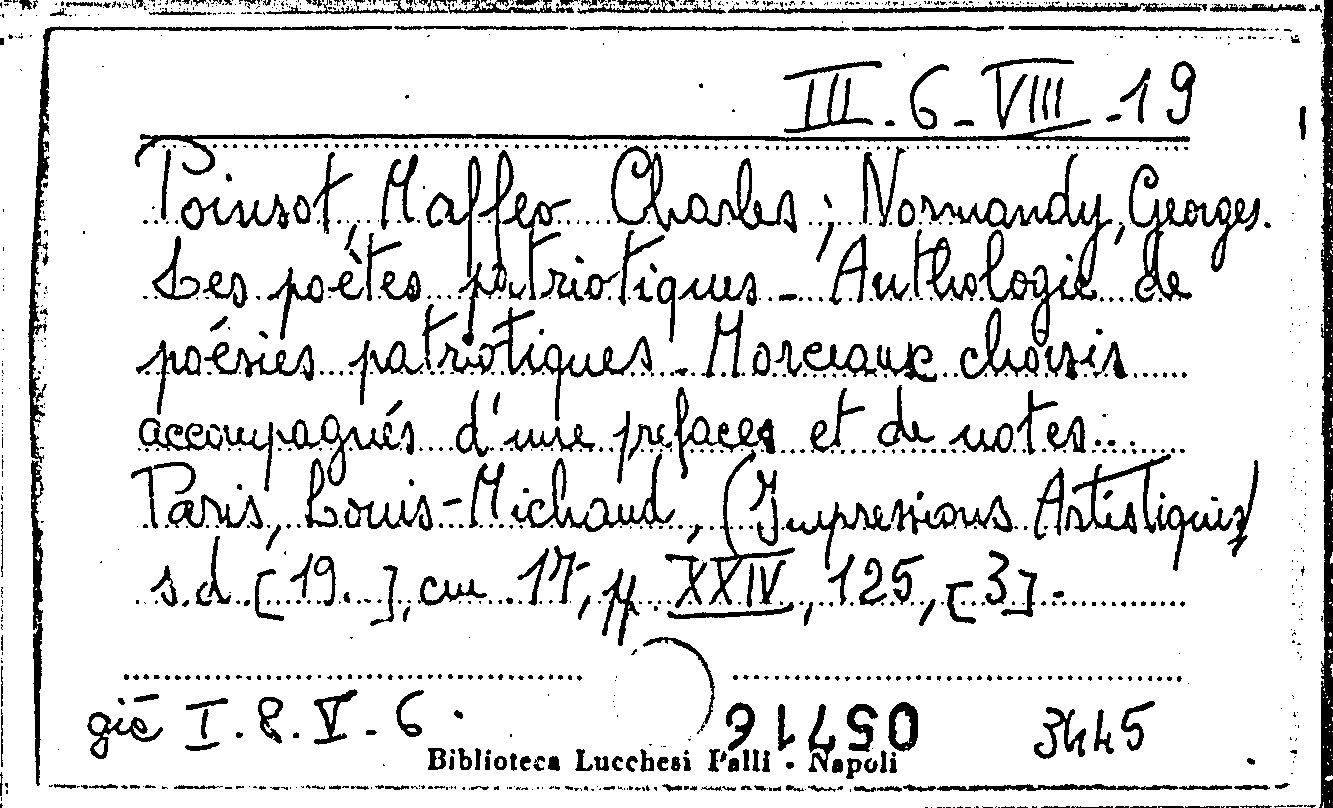 III. 6 - VIII - 19
Poinsot, Maffeo Charles; Normandy, Georges.
Les poètes patriotiques - Anthologie de
poésies patriotiques - Morceaux choisis
accompagnés d'une prefaces et de notes...
Paris, Louis-Michaud, (Impressions Artistiques)
s.d. [19..], cm 17, pp. XXIV, 125, [3].
già I. 8. V. 6.
3445
Biblioteca Lucchesi Palli - Napoli